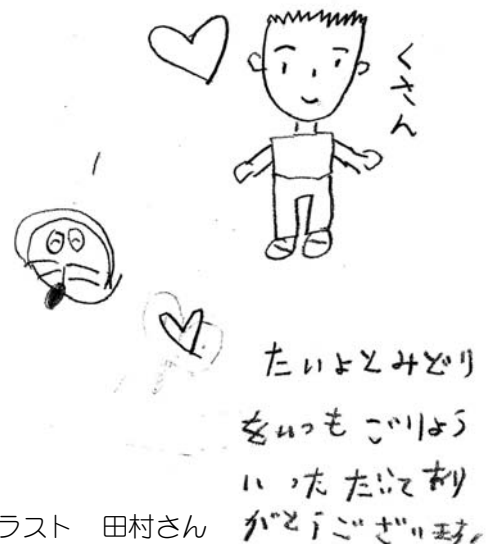 くさん
たいよとみどり
をいつもごりよう
いったたいてあり
がとうございます。
ラスト 田村さん